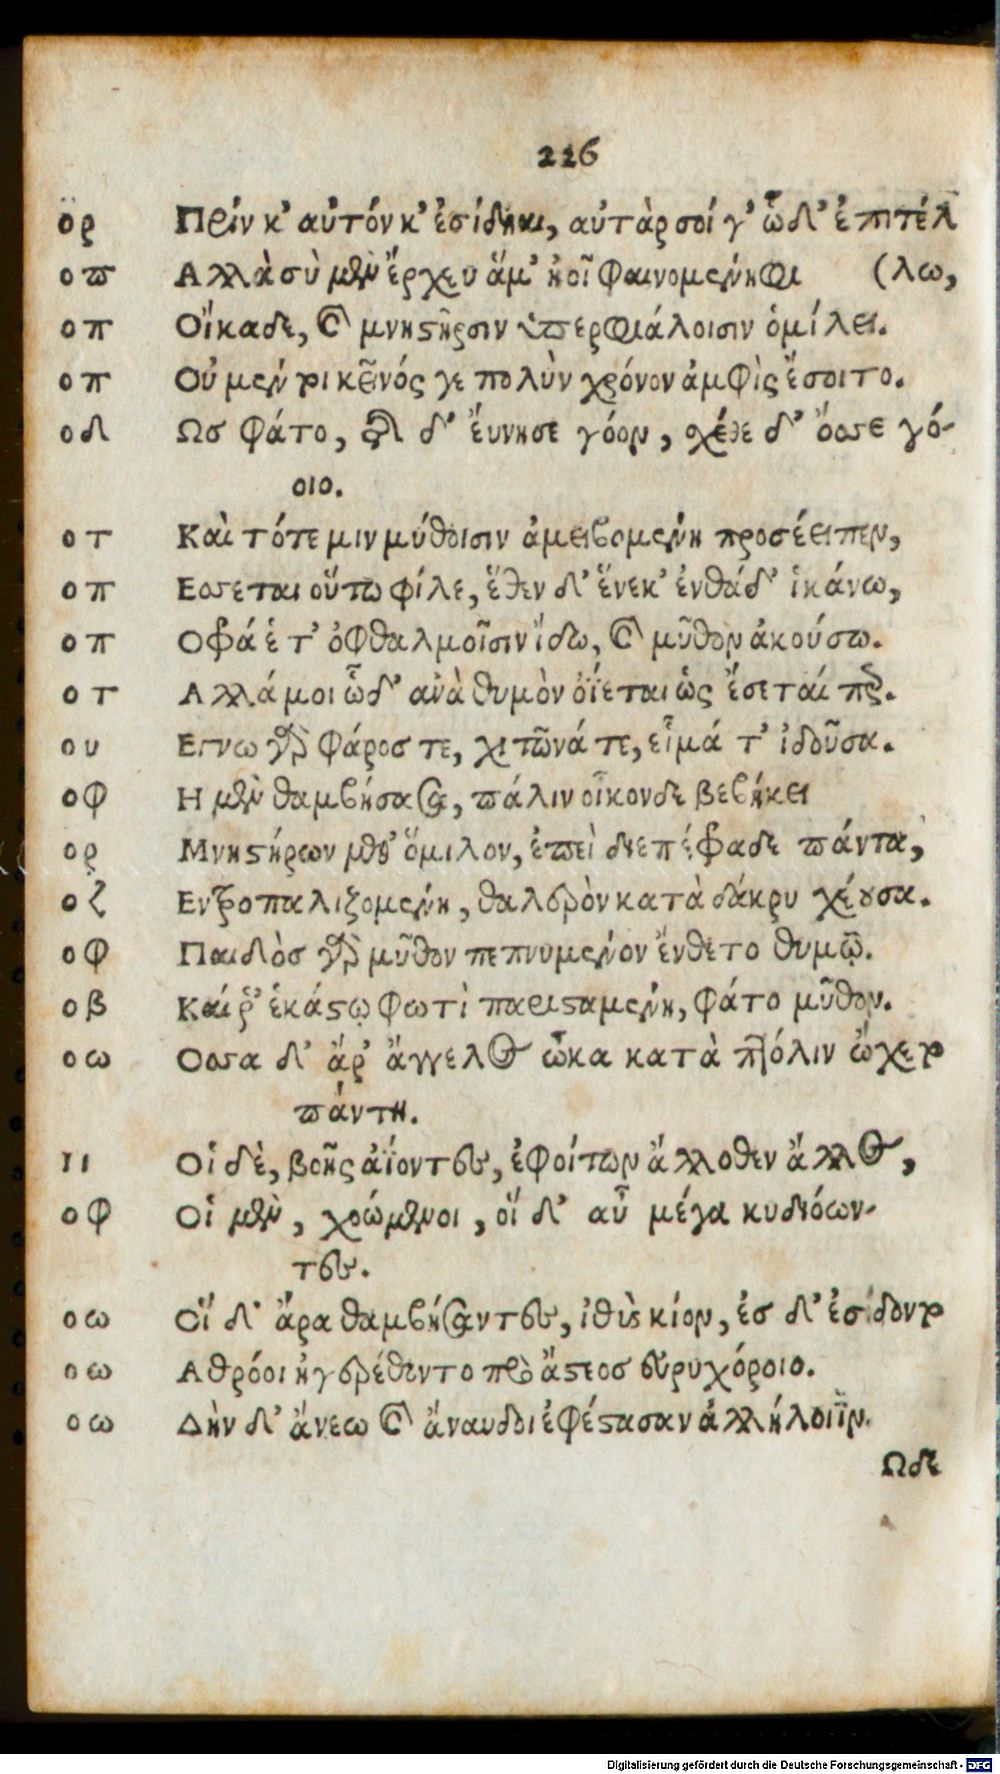 226
ορ Πρίν κ' αὐτόν κ' ἐσίδηαι, αὐτὰρ σοί γ' ὧδ' ἐπιτέλ
οπ Αλλὰ σὺ μὲν ἔρχευ ἅμ' ἠοῖ φαινομένηφι (λω,
οπ Οἴκαδε, καὶ μνηστῆρσιν ὑπερφιάλοισιν ὁμίλει.
οπ Οὐ μέν τι κεῖνός γε πολὺν χρόνον ἀμφὶς ἔσοιτο.
οδ Ως φάτο, τῆς δ' ἔυνησε γόον, σχέθε δ' ὄσσε γό-
οιο.
οτ Καὶ τότε μιν μύθοισιν ἀμειβομένη προσέειπεν,
οπ Εσσεται οὕτω φίλε, ἕθεν δ' ἕνεκ' ἐνθάδ' ἱκάνω,
οπ Οφρά ἑ τ' ὀφθαλμοῖσιν ἴδω, καὶ μῦθον ἀκούσω.
οτ Αλλά μοι ὧδ' ἀνὰ θυμὸν ὀΐεται ὡς ἔσεταί περ.
ου Εγνω γὰρ φάρος τε, χιτῶνά τε, εἷμά τ' ἰδοῦσα.
οφ Η μὲν θαμβήσασα, πάλιν οἶκονδε βεβήκει
ορ Μνηστήρων μεθ' ὅμιλον, ἐπεὶ διεπέφραδε πάντα,
οζ Εντροπαλιζομένη, θαλερὸν κατὰ δάκρυ χέουσα.
οφ Παιδὸς γὰρ μῦθον πεπνυμένον ἔνθετο θυμῷ.
οβ Καί ῥ' ἑκάστῳ φωτὶ παρισταμένη, φάτο μῦθον.
οω Οσσα δ' ἄρ' ἄγγελος ὦκα κατὰ πτόλιν ᾤχετο
πάντη.
ιι Οἱ δὲ, βοῆς ἀΐοντες, ἐφοίτων ἄλλοθεν ἄλλος,
οφ Οἱ μὲν, χωώμενοι, οἵ δ' αὖ μέγα κυδιόων-
τες.
οω Οἵ δ' ἄρα θαμβήσαντες, ἰθὺς κίον, ἐς δ' ἐσίδοντο
οω Αθρόοι ἠγερέθοντο πρὸ ἄστεος εὐρυχόροιο.
οω Δὴν δ' ἄνεω καὶ ἄναυδοι ἐφέστασαν ἀλλήλοιϊν.
Ωδε
Digitalisierung gefördert durch die Deutsche Forschungsgemeinschaft - DFG